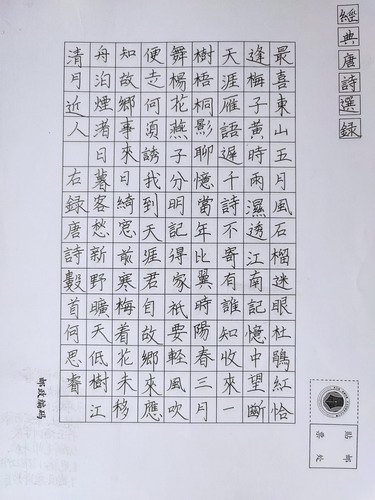 經典唐詩選錄
最喜東山五月風石榴迷眼杜鵑紅恰
逢梅子黃時雨濕透江南記憶中望斷
天涯雁語遲千詩不寄有誰知收來一
樹梧桐影聊憶當年比翼時陽春三月
舞楊花燕子分明記得家祇要輕風吹
便走何須誘我到天涯君自故鄉來應
知故鄉事來日綺窓前寒梅着花未移
舟泊煙渚日暮客愁新野曠天低樹江
清月近人 右錄唐詩數首何思睿
貼郵
票處
郵政編碼